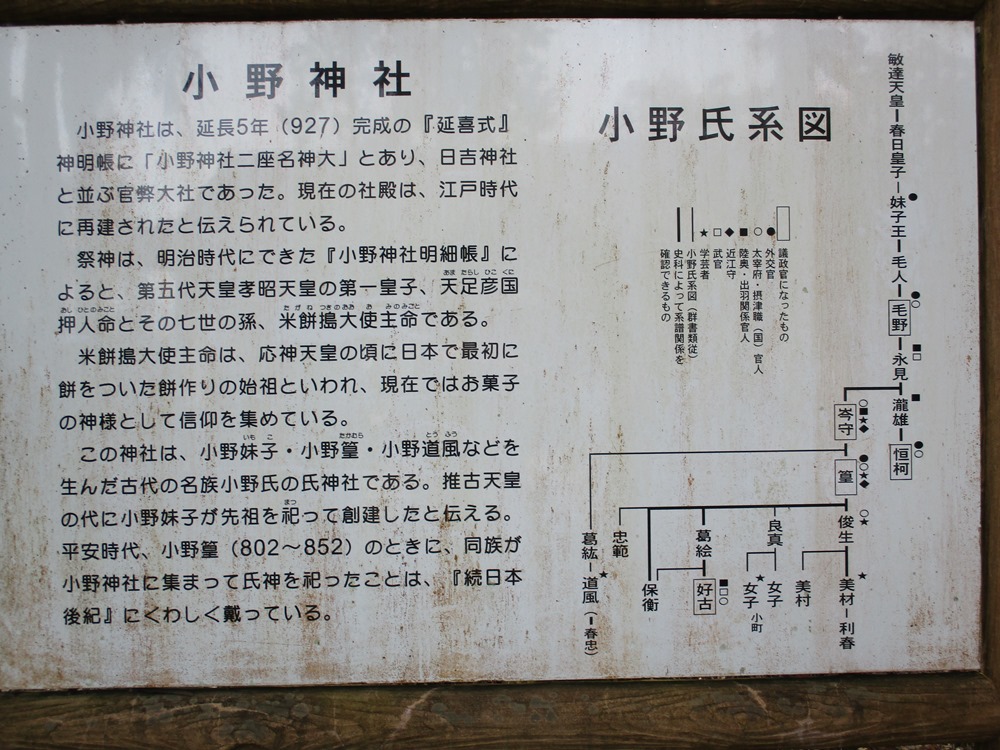 小野神社
小野神社は、延長5年（927）完成の『延喜式』
神明帳に「小野神社二座名神大」とあり、日吉神社
と並ぶ官弊大社であった。現在の社殿は、江戸時代
に再建されたと伝えられている。
祭神は、明治時代にできた『小野神社明細帳』に
あま たらし ひこ くに
よると、第五代天皇孝昭天皇の第一皇子、天足彦国
おし ひとのみこと たがね つきのおお お みのみこと
押人命とその七世の孫、米餅搗大使主命である。
米餅搗大使主命は、応神天皇の頃に日本で最初に
餅をついた餅作りの始祖といわれ、現在ではお菓子
の神様として信仰を集めている。
いも こ たかむら とう ふう
この神社は、小野妹子・小野篁・小野道風などを
生んだ古代の名族小野氏の氏神社である。推古天皇
まつ
の代に小野妹子が先祖を祀って創建したと伝える。
平安時代、小野篁（802〜852）のときに、同族が
小野神社に集まって氏神を祀ったことは、『続日本
後紀』にくわしく戴っている。
小野氏系図
敏達天皇ー春日皇子ー妹子王ー毛人ー毛野ー永見
瀧雄ー恒柯
岑守
篁
俊生
美材ー利春
美村
良真
女子
女子 小町
葛絵
好古
保衡
忠範
葛絃ー道風（ー春忠）
議政官になったもの
●外交官
○太宰府・摂津職（国）官人
■陸奥・出羽関係官人
◆近江守
□武官
★学芸者
小野氏系図（群書類従）
史料によって系譜関係を
確認できるもの